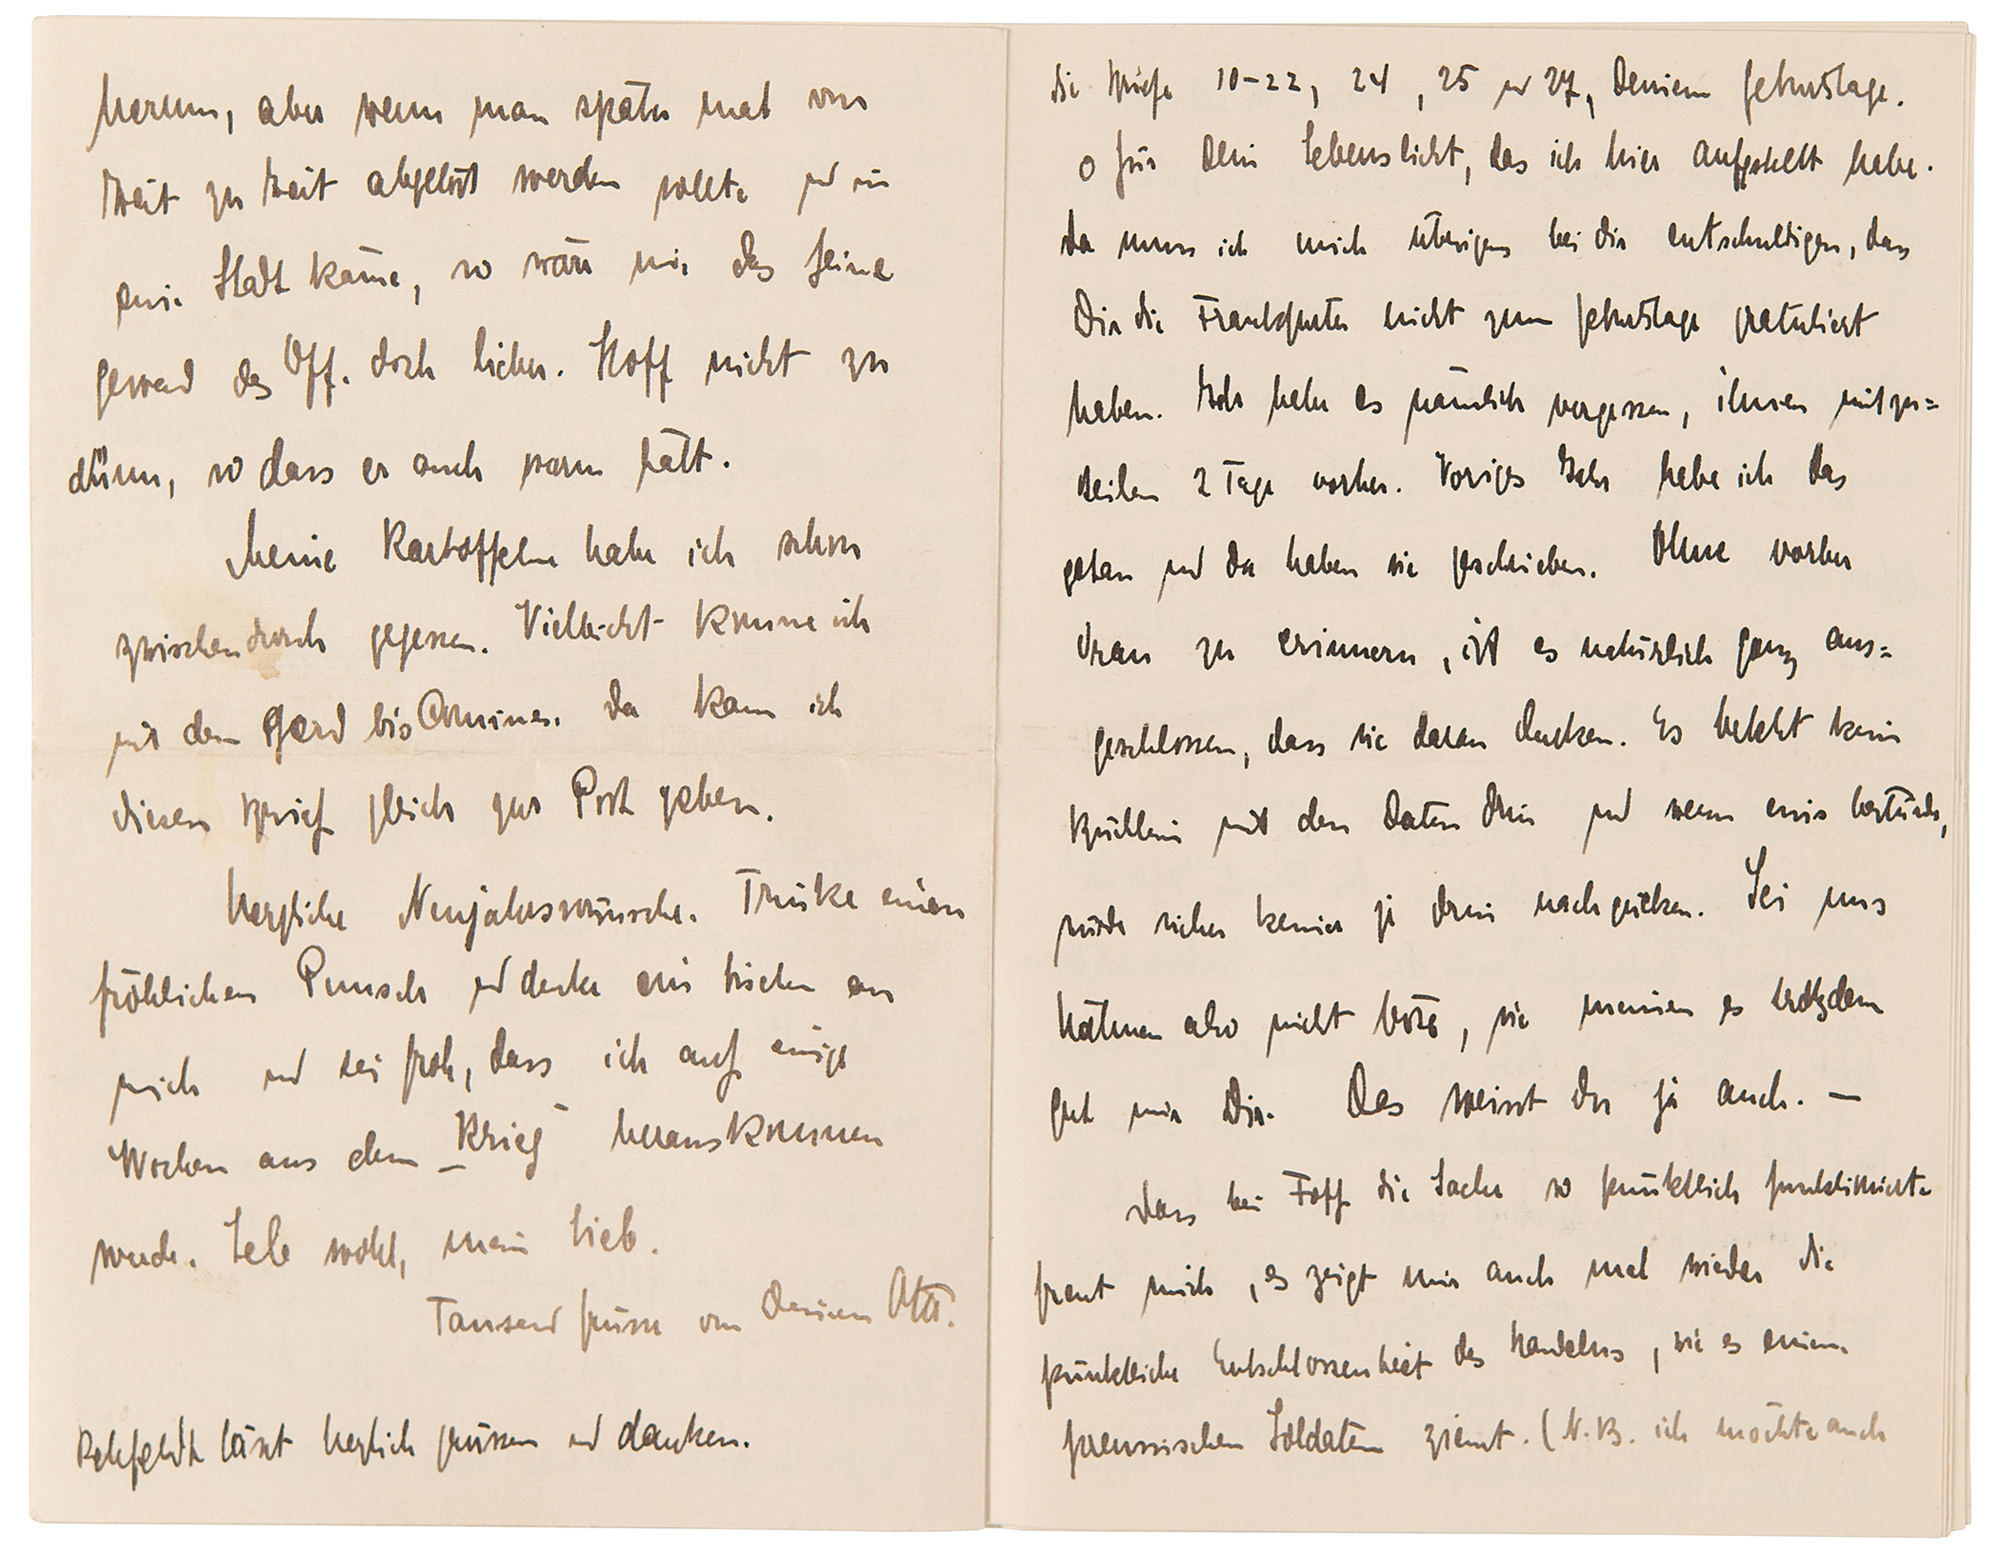 herum, aber wenn man später mal von
Zeit zu Zeit abgelöst werden sollte und in
eine Stadt käme, so wäre mir das feine
gewand des Off. doch lieber. Stoff nicht zu
dünn, so dass er auch warm hält.
Meine Kartoffeln habe ich schon
zwischendurch gegessen. Vielleicht komme ich
mit dem Pferd bis Comines. Da kann ich
diesen Brief gleich zur Post geben.
Herzliche Neujahrswünsche. Trinke einen
fröhlichen Punsch und denke ein bischen an
mich und sei froh, dass ich auf einige
Wochen aus dem „Krieg“ herauskommen
werde. Lebe wohl, mein Lieb.
Tausend Grüsse von Deinem Otto.
Rehfeldt lässt herzlich grüssen und danken.
die Briefe 10-22, 24, 25 und 27, Deinem Geburtstage.
o für Dein Lebenslicht, das ich hier aufgestellt habe.
Da muss ich mich übrigens bei Dir entschuldigen, dass
Dir die Frankfurter nicht zum Geburtstage gratuliert
haben. Ich habe es nämlich vergessen, ihnen mitzu=
teilen 2 Tage vorher. Voriges Jahr habe ich das
getan und da haben sie geschrieben. Ohne vorher
dran zu erinnern, ist es natürlich ganz aus=
geschlossen, dass sie daran denken. Es besteht kein
Büchlein mit den Daten drin und wenn eins bestünde,
würde sicher keiner je drin nachgucken. Sei uns
Hähnen also nicht böse, sie meinen es trotzdem
gut mir Dir. Das weisst Du ja auch. —
Dass bei Toff die Sache so pünktlich funktionierte
freut mich, es zeigt mir auch mal wieder die
pünktliche Entschlossenheit des Handelns, wie es einem
preussischen Soldaten ziemt. (N.B. ich möchte auch